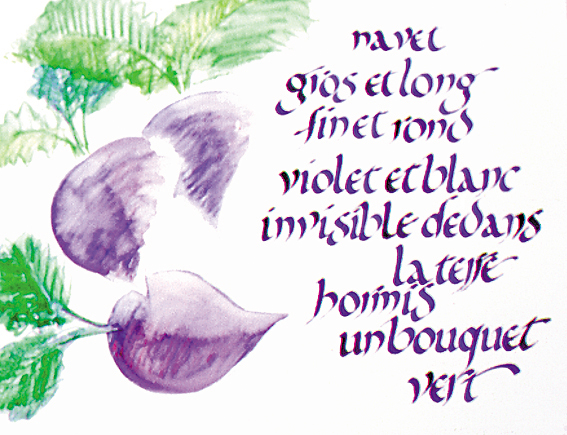 navet
gros et long
fin et rond
violet et blanc
invisible dedans
la terre
hormis
un bouquet
vert